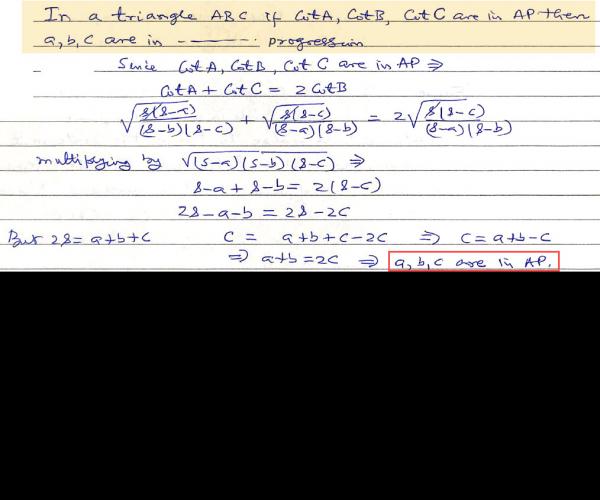 In a triangle ABC if Cot A, Cot B, Cot C are in AP then
a, b, c are in ———. progression
Since Cot A, Cot B, Cot C are in AP ⇒
Cot A + Cot C = 2 Cot B
√(s(s-a)/(s-b)(s-c)) + √(s(s-c)/(s-a)(s-b)) = 2√(s(s-c)/(s-a)(s-b))
multiplying by √(s-a)(s-b)(s-c) ⇒
s-a + s-b = 2(s-c)
2s-a-b = 2s-2c
But 2s = a+b+c c = a+b+c-2c ⇒ c = a+b-c
⇒ a+b = 2c ⇒ a, b, c are in AP.